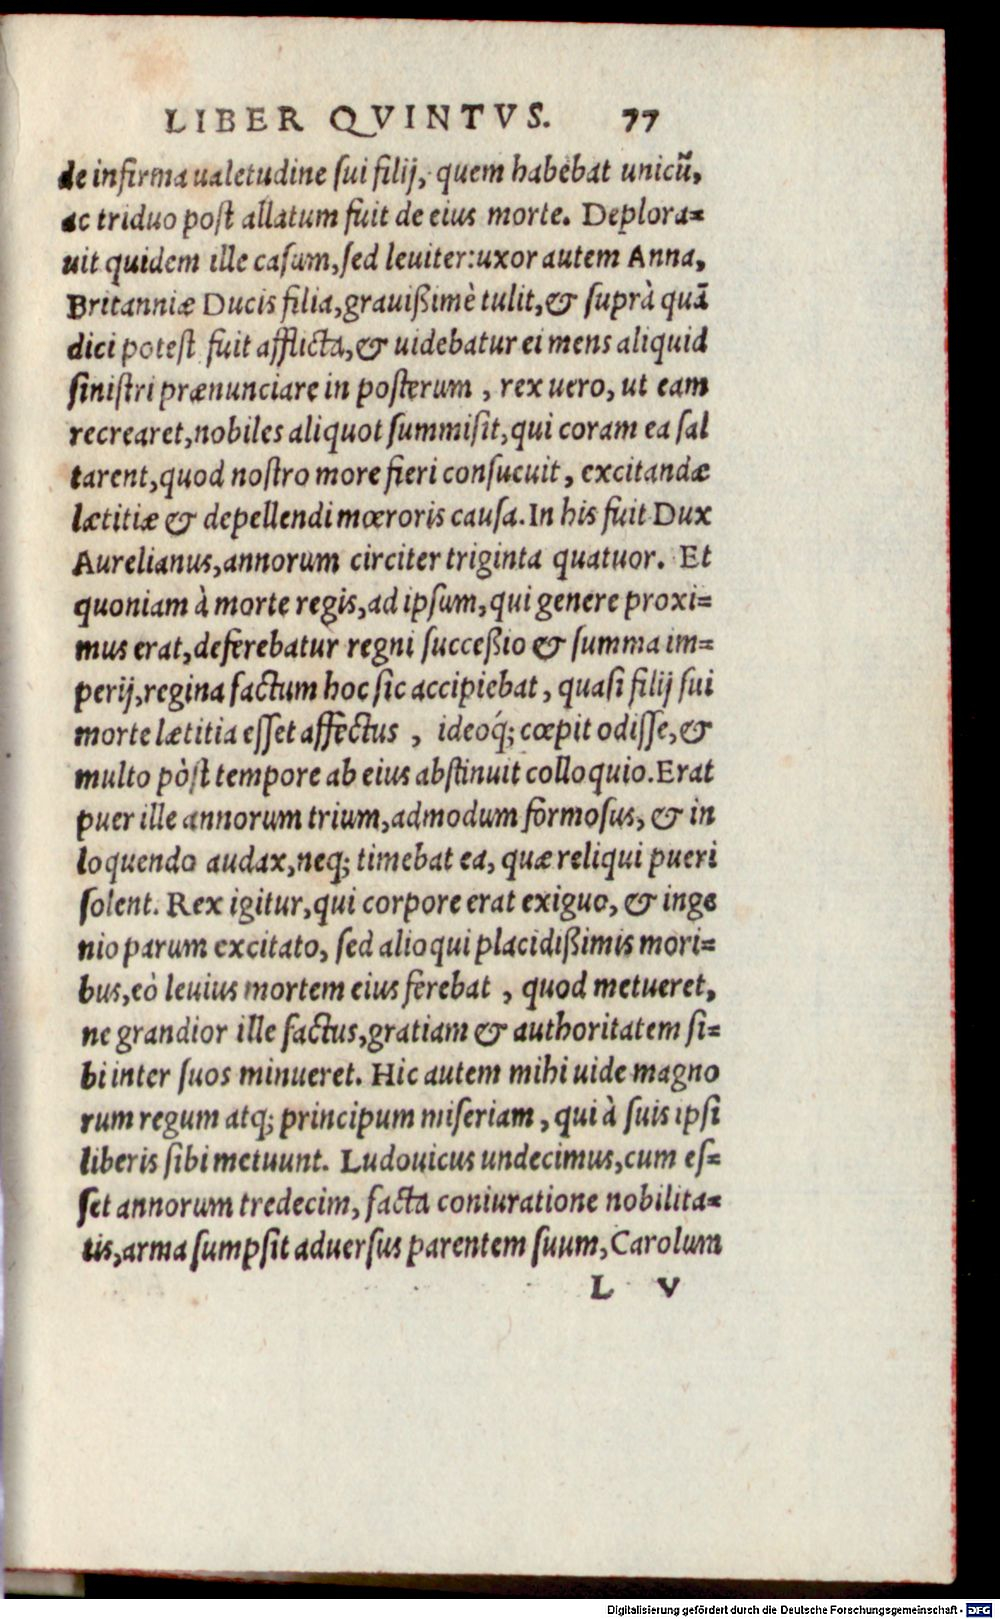 LIBER QVINTVS. 77
de infirma ualetudine sui filij, quem habebat unicũ,
ac triduo post allatum fuit de eius morte. Deplora=
uit quidem ille casum, sed leuiter: uxor autem Anna,
Britanniæ Ducis filia, grauißimè tulit, & suprà quã
dici potest fuit afflicta, & uidebatur ei mens aliquid
sinistri prænunciare in posterum, rex uero, ut eam
recrearet, nobiles aliquot summisit, qui coram ea sal
tarent, quod nostro more fieri consueuit, excitandæ
lætitiæ & depellendi mœroris causa. In his fuit Dux
Aurelianus, annorum circiter triginta quatuor. Et
quoniam à morte regis, ad ipsum, qui genere proxi=
mus erat, deferebatur regni succeßio & summa im=
perij, regina factum hoc sic accipiebat, quasi filij sui
morte lætitia esset affectus, ideoq́; cœpit odisse, &
multo pòst tempore ab eius abstinuit colloquio. Erat
puer ille annorum trium, admodum formosus, & in
loquendo audax, neq; timebat ea, quæ reliqui pueri
solent. Rex igitur, qui corpore erat exiguo, & inge
nio parum excitato, sed alioqui placidißimis mori=
bus, eò leuius mortem eius ferebat, quod metueret,
ne grandior ille factus, gratiam & authoritatem si=
bi inter suos minueret. Hic autem mihi uide magno
rum regum atq; principum miseriam, qui à suis ipsi
liberis sibi metuunt. Ludouicus undecimus, cum es=
set annorum tredecim, facta coniuratione nobilita=
tis, arma sumpsit aduersus parentem suum, Carolum
L v
Digitalisierung gefördert durch die Deutsche Forschungsgemeinschaft - DFG